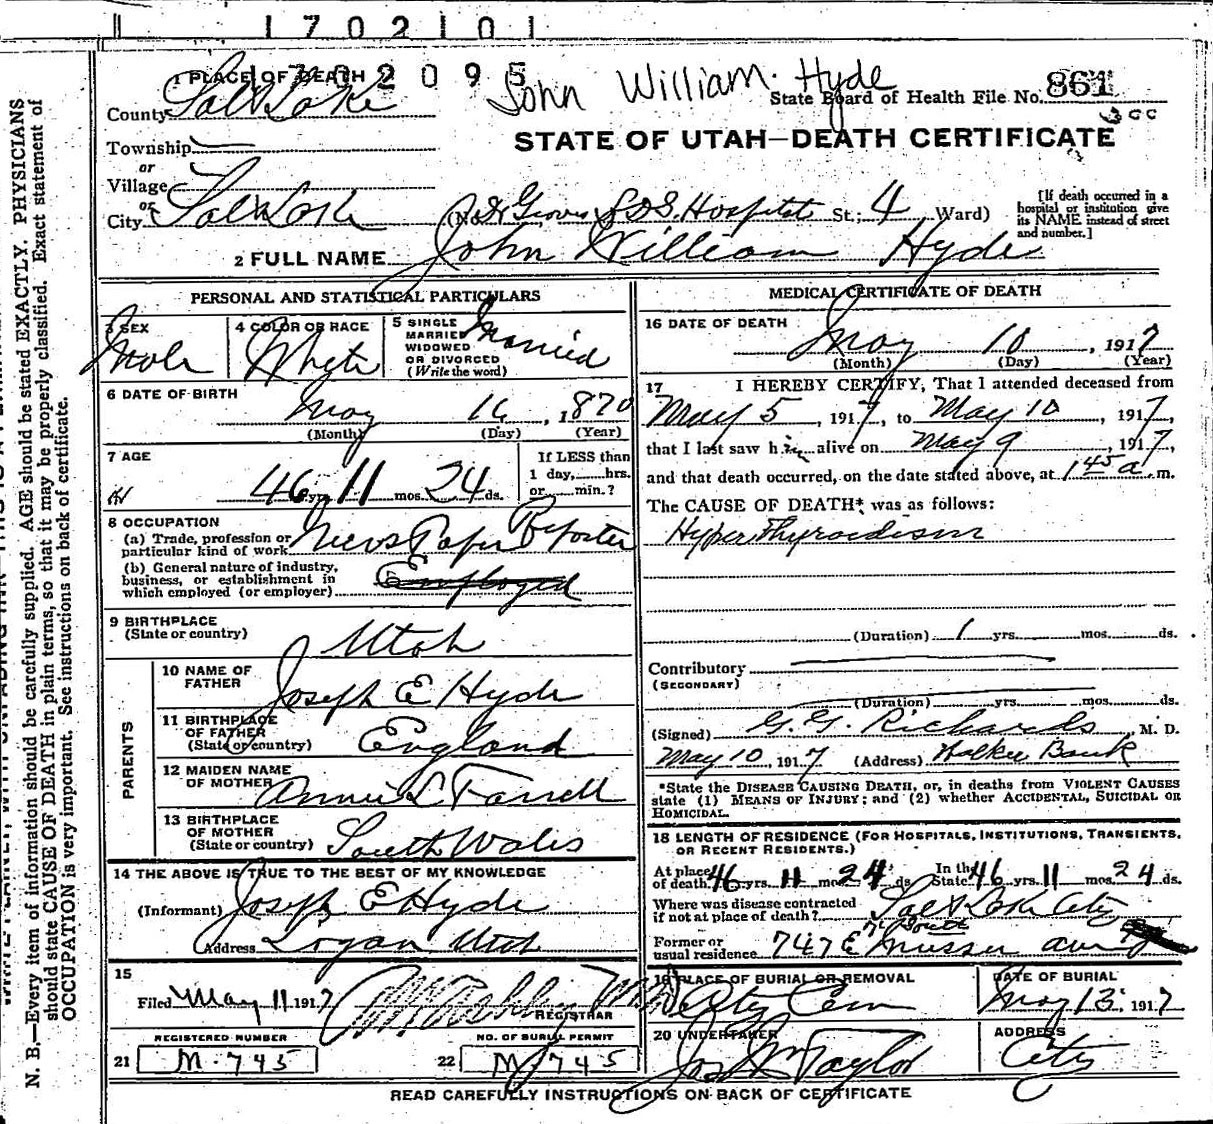 1702101
1702095
John William Hyde
1 PLACE OF DEATH
County Salt Lake
State Board of Health File No. 861
Township
or
STATE OF UTAH—DEATH CERTIFICATE
Village
or
City Salt Lake (No. L D S. Hospital St; 4 Ward)
[If death occurred in a hospital or institution give its NAME instead of street and number.]
2 FULL NAME John William Hyde
PERSONAL AND STATISTICAL PARTICULARS
3 SEX
Male
4 COLOR OR RACE
White
5 SINGLE
MARRIED
WIDOWED
OR DIVORCED
(Write the word)
Married
6 DATE OF BIRTH
May 16, 1870
(Month) (Day) (Year)
7 AGE
46 yrs. 11 mos. 24 ds.
If LESS than
1 day,......hrs.
or......min.?
8 OCCUPATION
(a) Trade, profession or
particular kind of work News Paper Reporter
(b) General nature of industry,
business, or establishment in
which employed (or employer) Employed
9 BIRTHPLACE
(State or country)
Utah
PARENTS
10 NAME OF
FATHER
Joseph E Hyde
11 BIRTHPLACE
OF FATHER
(State or country)
England
12 MAIDEN NAME
OF MOTHER
Annie L Farrell
13 BIRTHPLACE
OF MOTHER
(State or country)
South Wales
14 THE ABOVE IS TRUE TO THE BEST OF MY KNOWLEDGE
(Informant) Joseph E Hyde
Address Logan Utah
15
Filed May 11 1917
REGISTRAR
REGISTERED NUMBER
21 M-745
NO. OF BURIAL PERMIT
22 M 745
MEDICAL CERTIFICATE OF DEATH
16 DATE OF DEATH
May 10, 1917
(Month) (Day) (Year)
17 I HEREBY CERTIFY, That I attended deceased from
May 5, 1917, to May 10, 1917,
that I last saw him alive on May 9, 1917,
and that death occurred, on the date stated above, at 1 45 a m.
The CAUSE OF DEATH* was as follows:
Hyper Thyroidism
(Duration) 1 yrs. mos. ds.
Contributory
(SECONDARY)
(Duration) yrs. mos. ds.
(Signed) G. G. Richards, M. D.
May 10, 1917 (Address) Walker Bank
*State the DISEASE CAUSING DEATH, or, in deaths from VIOLENT CAUSES
state (1) MEANS OF INJURY; and (2) whether ACCIDENTAL, SUICIDAL OR
HOMICIDAL.
18 LENGTH OF RESIDENCE (FOR HOSPITALS, INSTITUTIONS, TRANSIENTS,
OR RECENT RESIDENTS.)
At place
of death 46 yrs. 11 mos. 24 ds.
In the
State 46 yrs. 11 mos. 24 ds.
Where was disease contracted
if not at place of death? Salt Lake City
Former or
usual residence 747 E Musser ave
19 PLACE OF BURIAL OR REMOVAL
City Cem
DATE OF BURIAL
May 13, 1917
20 UNDERTAKER
Jos Wm Taylor
ADDRESS
City
READ CAREFULLY INSTRUCTIONS ON BACK OF CERTIFICATE
N. B.—Every item of information should be carefully supplied. AGE should be stated EXACTLY. PHYSICIANS
should state CAUSE OF DEATH in plain terms, so that it may be properly classified. Exact statement of
OCCUPATION is very important. See instructions on back of certificate.